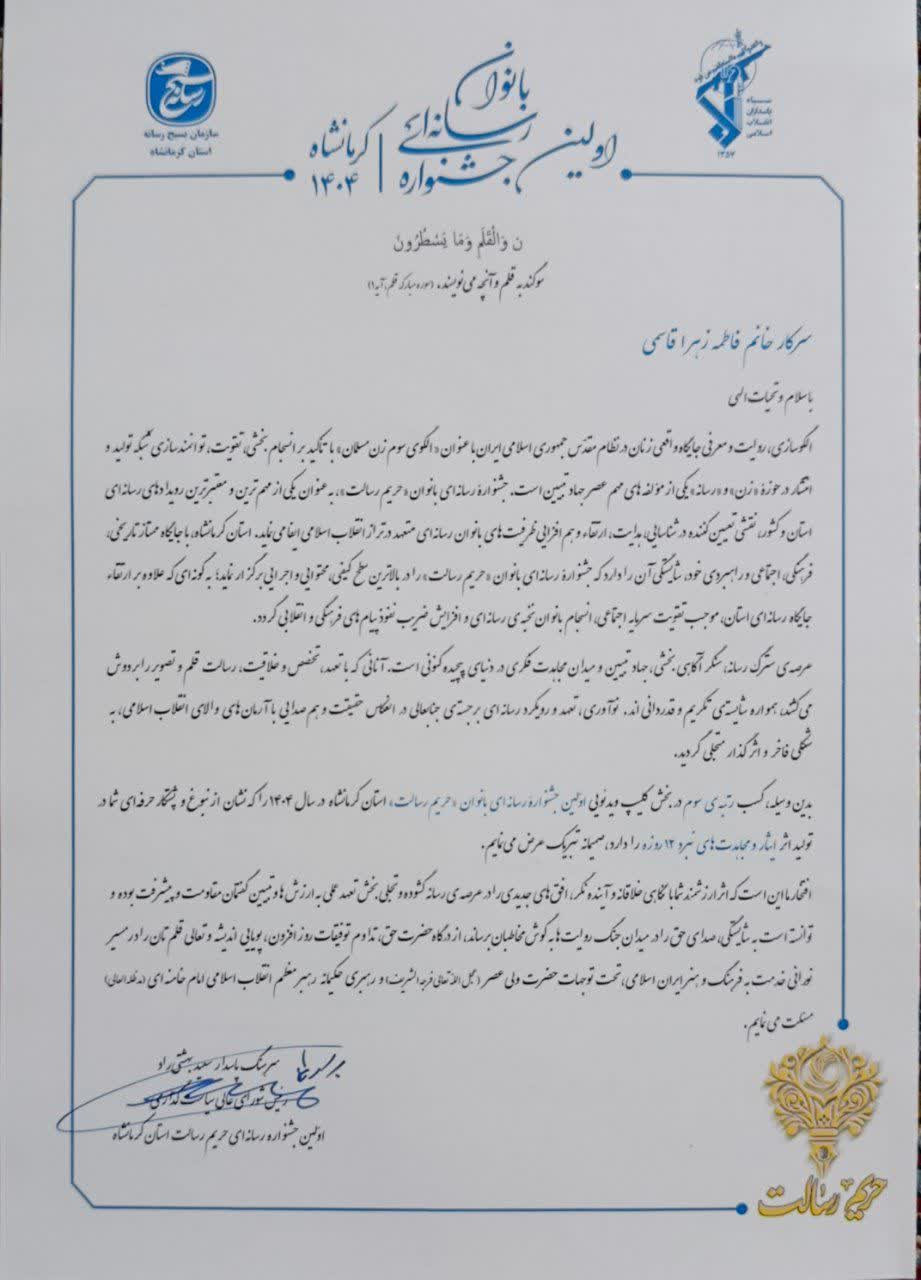 سپاه
پاسداران
انقلاب
اسلامی
۱۳۵۷
اولین جشنواره رسانه‌ای بانوان
کرمانشاه
۱۴۰۴
رسانه
سازمان بسیج رسانه
استان کرمانشاه
ن وَالْقَلَمِ وَمَا يَسْطُرُونَ
سوگند به قلم و آنچه می‌نویسند. (سوره مبارکه قلم، آیه ۱)
سرکار خانم فاطمه زهرا قاسمی
با سلام و تحیات الهی
الگوسازی، روایت و معرفی جایگاه واقعی زنان در نظام مقدس جمهوری اسلامی ایران با عنوان «الگوی سوم زن مسلمان» با تأکید بر انسجام بخشی، تقویت، توانمندسازی شبکه تولید و
انتشار در حوزهٔ «زن» و «رسانه» یکی از مؤلفه های مهم عصر جهاد تبیین است. جشنوارهٔ رسانه ای بانوان «حریم رسالت»، به عنوان یکی از مهم ترین و معتبرترین رویدادهای رسانه ای
استان و کشور، نقشی تعیین کننده در شناسایی، هدایت، ارتقاء و هم افزایی ظرفیت های بانوان رسانه ای متعهد در تراز انقلاب اسلامی ایفا می نماید. استان کرمانشاه، با جایگاه ممتاز تاریخی،
فرهنگی، اجتماعی و راهبردی خود، شایستگی آن را دارد که جشنوارهٔ رسانه ای بانوان «حریم رسالت» را در بالاترین سطح کیفی، محتوایی و اجرایی برگزار نماید؛ به گونه ای که علاوه بر ارتقاء
جایگاه رسانه ای استان، موجب تقویت سرمایه اجتماعی، انسجام بانوان نخبه‌ی رسانه ای و افزایش ضریب نفوذ پیام های فرهنگی و انقلابی گردد.
عرصه‌ی سترگ رسانه، سنگر آگاهی بخشی، جهاد تبیین و میدان مجاهدت فکری در دنیای پیچیده کنونی است. آنانی که با تعهد، تخصص و خلاقیت، رسالت قلم و تصویر را بر دوش
می کشند، همواره شایسته‌ی تکریم و قدردانی اند. نوآوری، تعهد و رویکرد رسانه ای برجسته‌ی جنابعالی در انعکاس حقیقت و هم صدایی با آرمان های والای انقلاب اسلامی، به
شکلی فاخر و اثرگذار متجلی گردید.
بدین وسیله، کسب رتبه‌ی سوم در بخش کلیپ ویدئویی اولین جشنوارهٔ رسانه ای بانوان «حریم رسالت» استان کرمانشاه در سال ۱۴۰۴ را که نشان از نبوغ و پشتکار حرفه ای شما در
تولید اثر ایثار و مجاهدت های نبرد ۱۲ روزه را دارد، صمیمانه تبریک عرض می نمایم.
افتخار ما این است که اثر ارزشمند شما با نگاهی خلاقانه و آینده نگر، افق های جدیدی را در عرصه‌ی رسانه گشوده و تجلی بخش تعهد عملی به ارزش ها و تبیین گفتمان مقاومت و پیشرفت بوده و
توانسته است به شایستگی، صدای حق را در میدان جنگ روایت ها به گوش مخاطبان برساند، از درگاه حضرت حق، تداوم توفیقات روز افزون، پویایی اندیشه و تعالی قلم تان را در مسیر
نورانی خدمت به فرهنگ و هنر ایران اسلامی، تحت توجهات حضرت ولی عصر (عجل الله تعالی فرجه الشریف) و رهبری حکیمانه رهبر معظم انقلاب اسلامی امام خامنه ای (مدظله العالی)
مسئلت می نمایم.
سرهنگ پاسدار سعید بهشتی راد
رئیس شورای عالی سیاست گذاری
اولین جشنواره رسانه ای حریم رسالت استان کرمانشاه
حریم رسالت